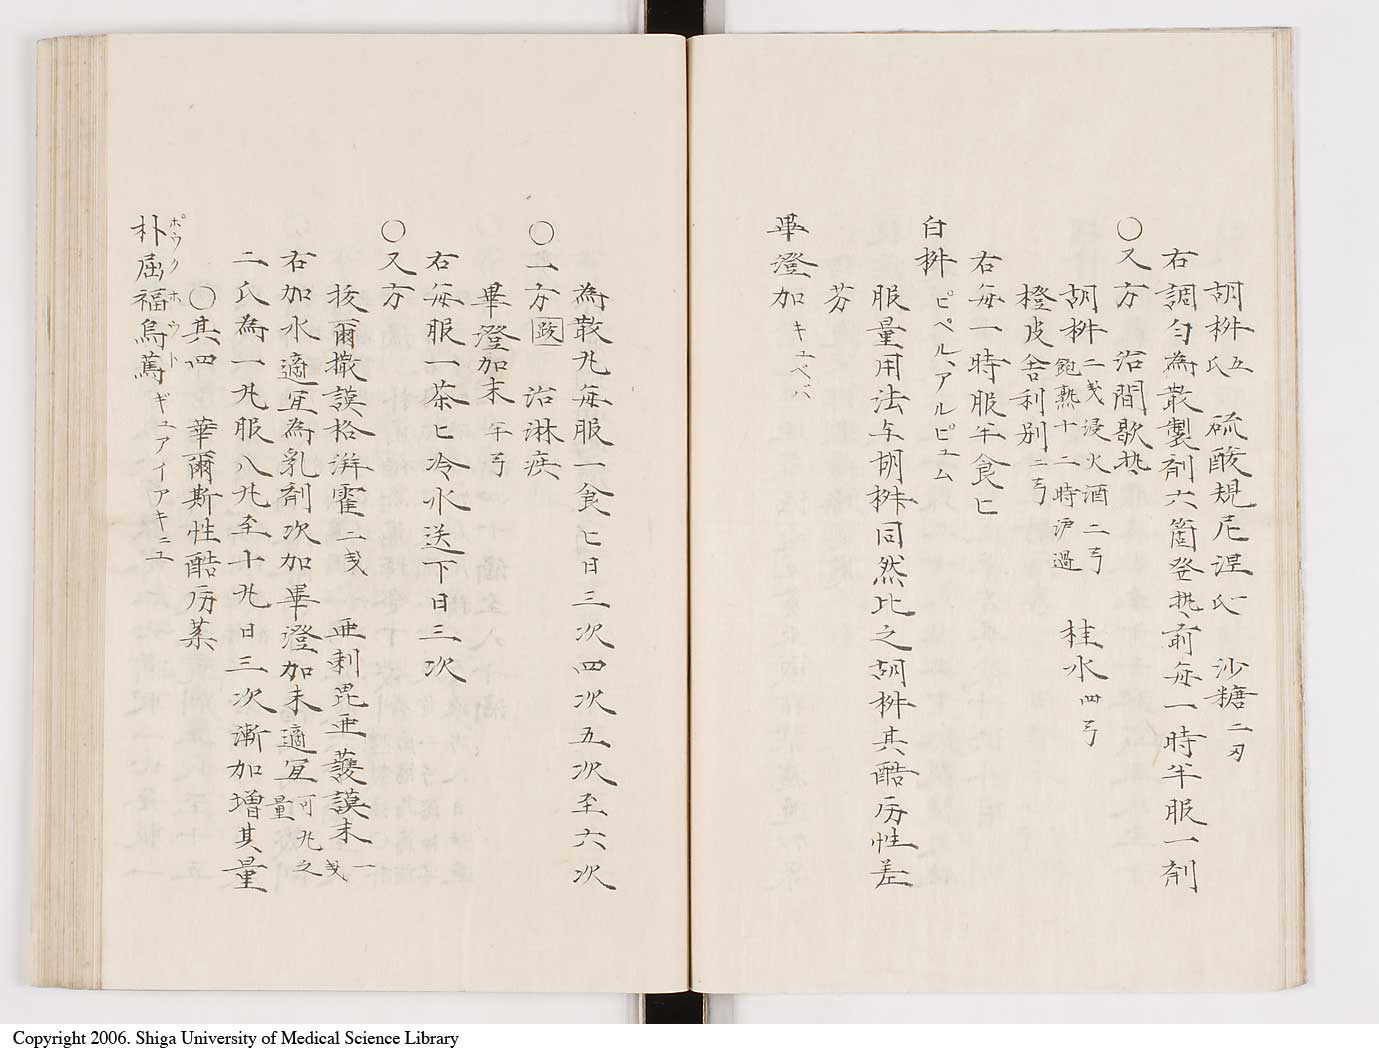 胡椒 五氏 硫酸規尼涅 一氏 沙糖 二刃
右調勻為散製剤六箇登热前毎一時半服一剤
〇又方 治間歇热
胡椒 二戔浸火酒二弓飽熱十二時沪過 桂水 四弓
橙皮舎利別 二弓
右毎一時服半食匕
白椒 ピペル、アルビュム
服量用法与胡椒同然比之胡椒其酷厉性差
芬
畢澄加 キュベバ
為散丸毎服一食匕日三次四次五次至六次
〇一方 治淋疾
畢澄加末 半弓
右毎服一茶匕冷水送下日三次
〇又方
抜爾撒謨格湃霍 二戔 亜刺毘亜護謨末 一戔
右加水適宜為乳剤次加畢澄加末適宜 可丸之量
二氏為一丸服八丸至十丸日三次漸加増其量
〇其四 華爾斯性酷厉薬
朴屈福烏篤 ポウクホウト ギュアイアキュユ
Copyright 2006. Shiga University of Medical Science Library